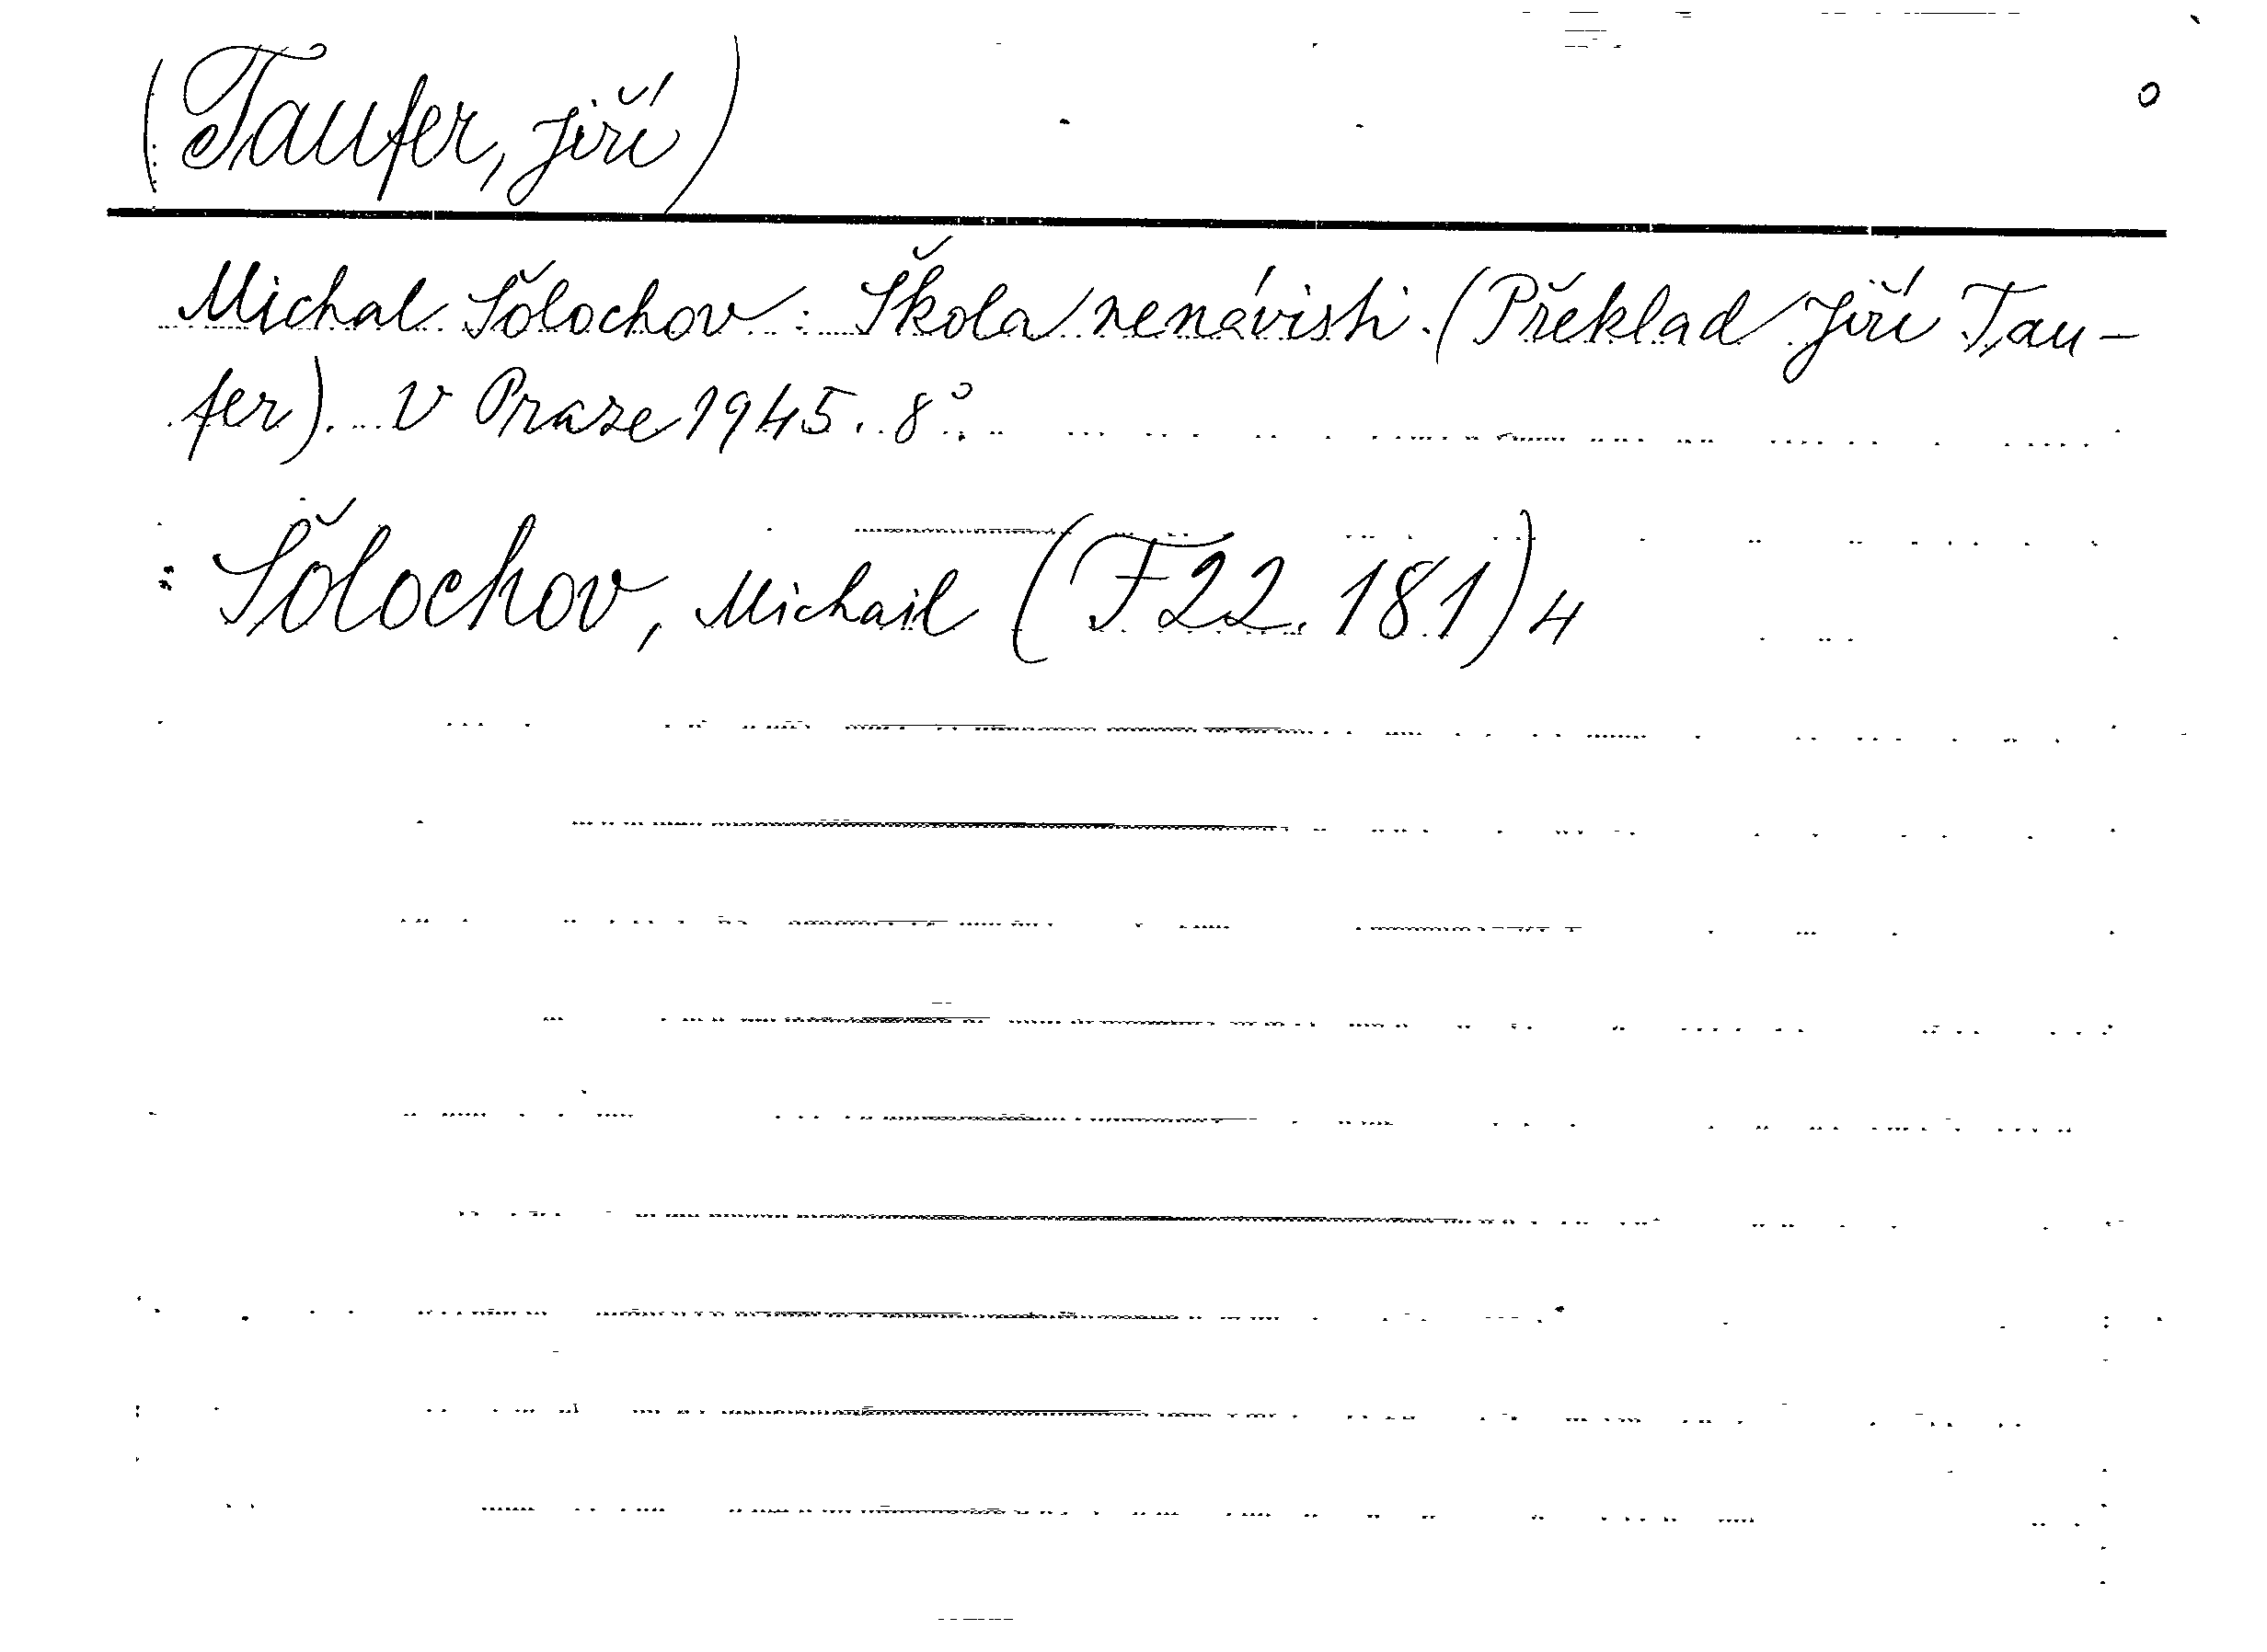 (Taufer, Jiří)
Michal Šolochov: Škola nenávisti. (Překlad Jiří Tau-
fer). V Praze 1945. 8°.
Šolochov, Michail (F 22.181) 4